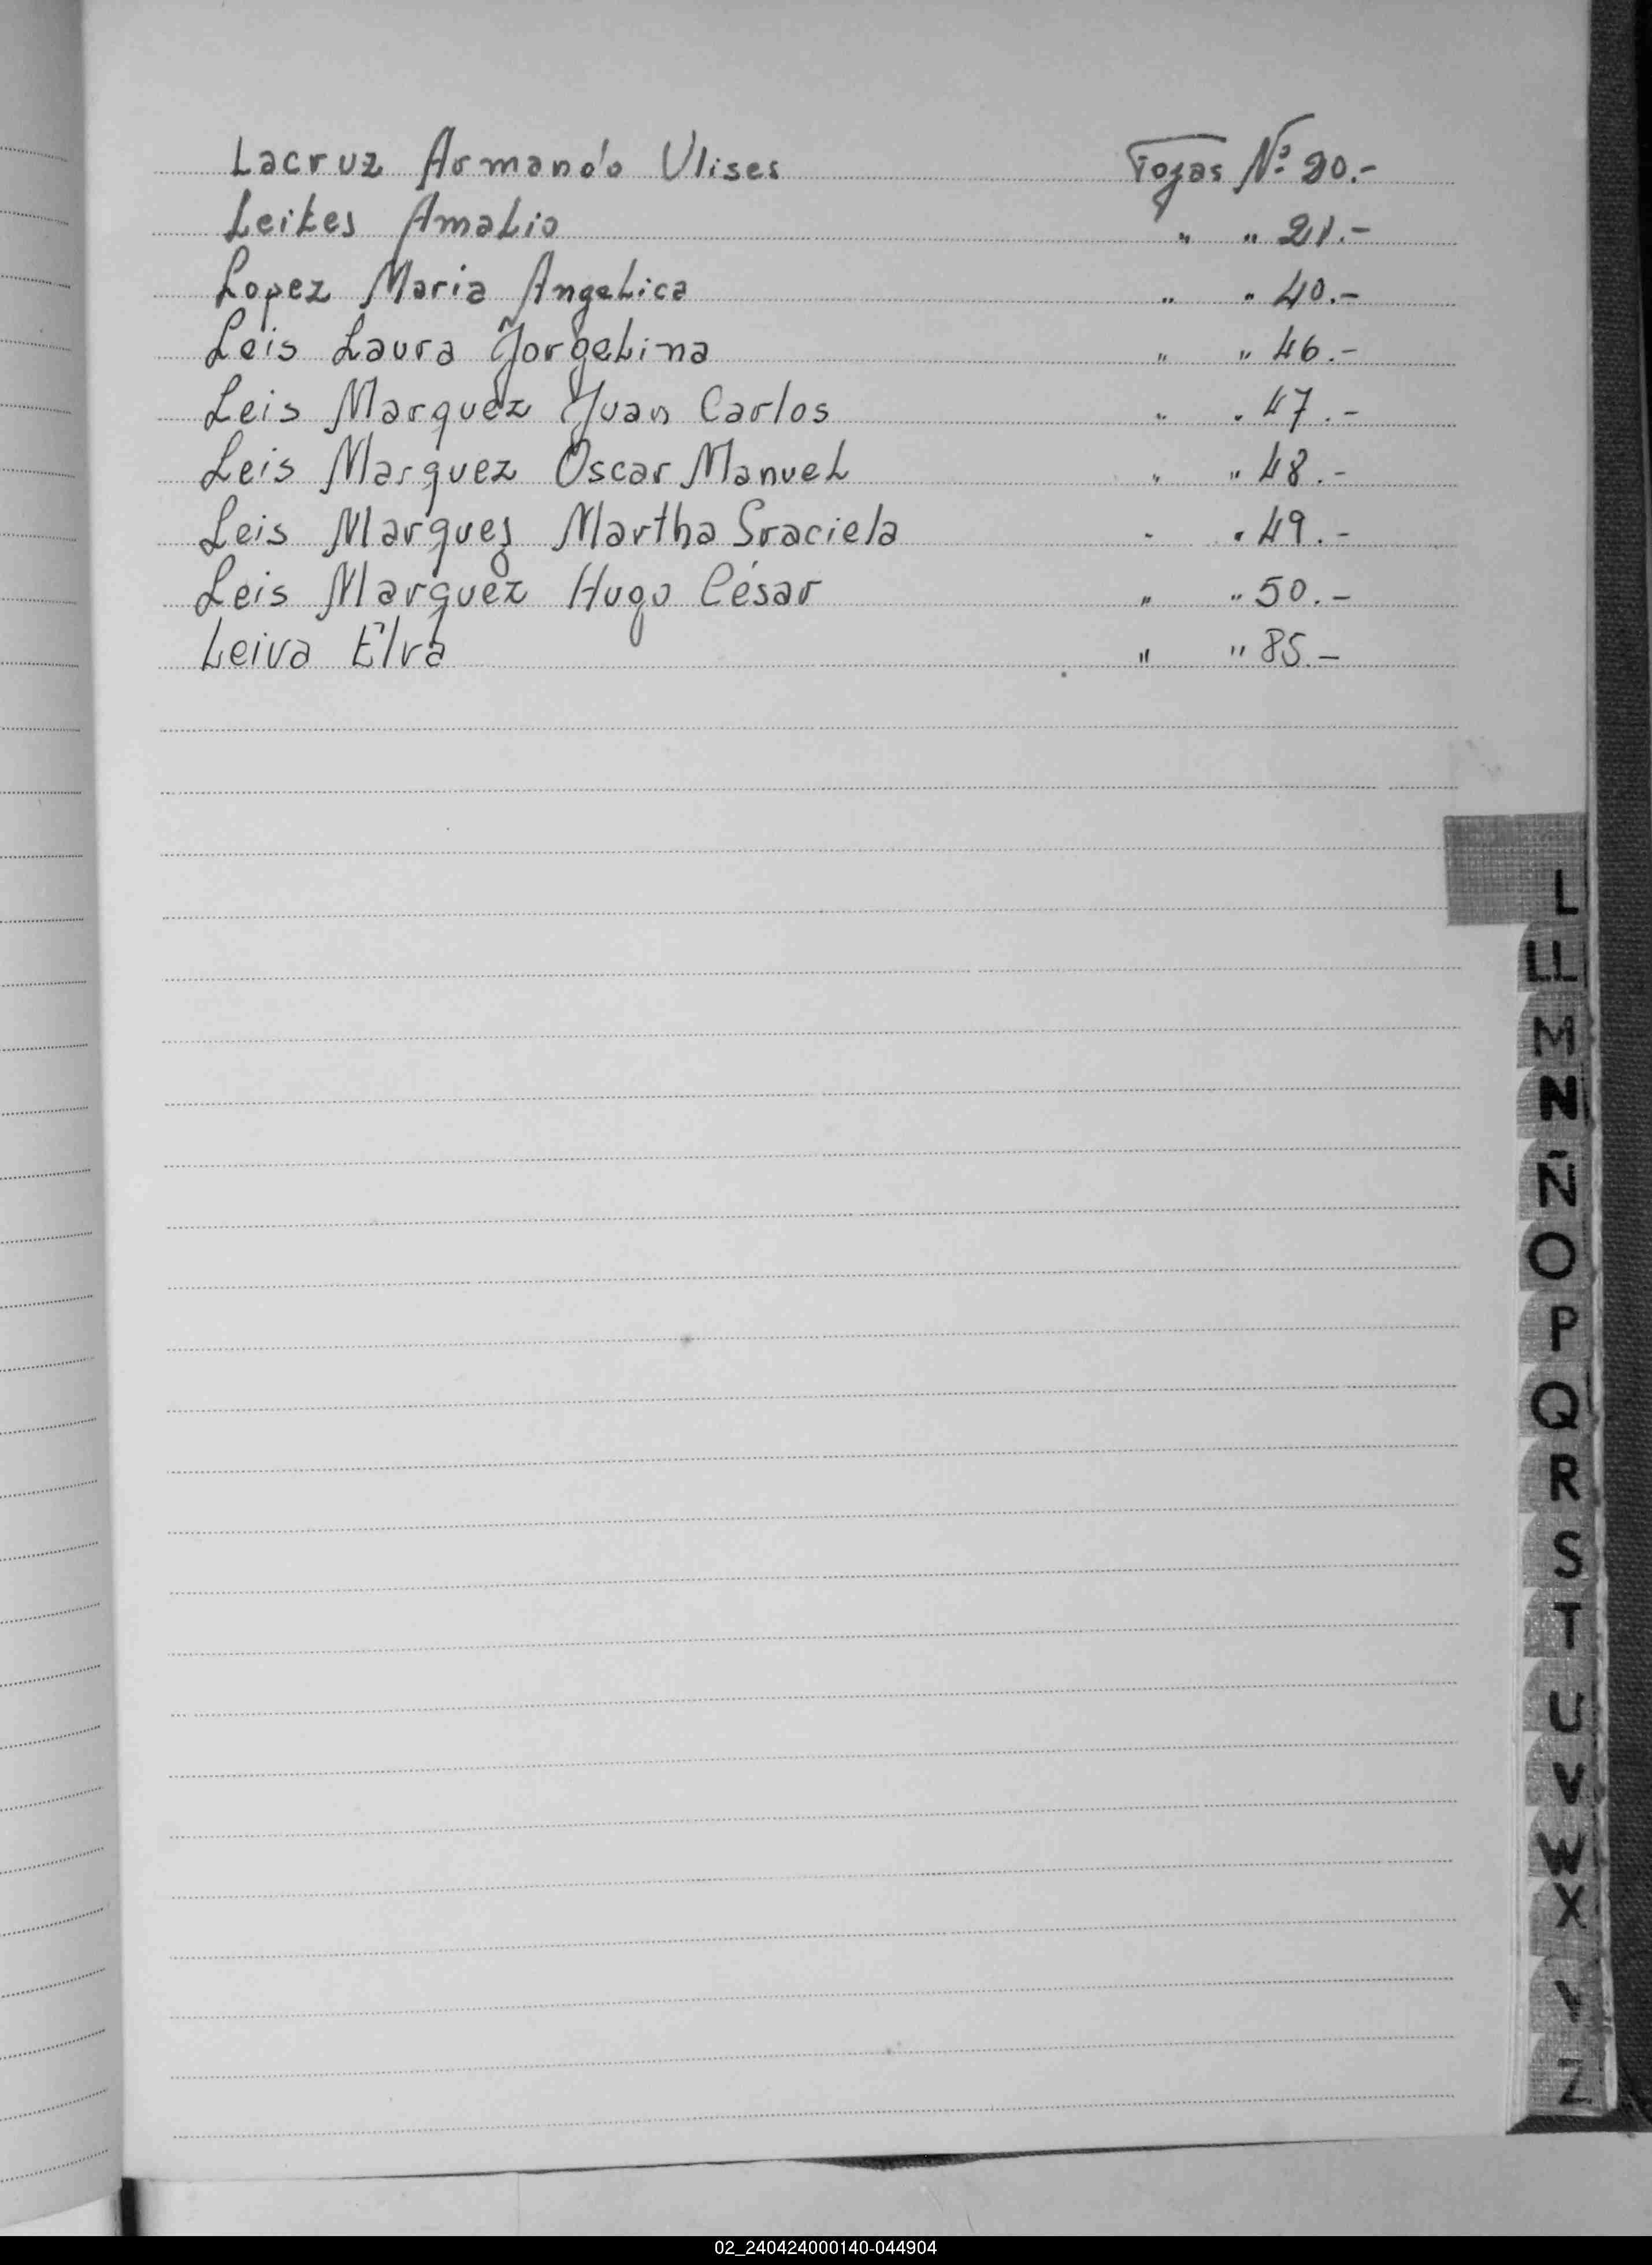 Lacruz Armando Ulises Fojas Nº 20.-
Leites Amalio " " 21.-
Lopez Maria Angelica " " 40.-
Leis Laura Jorgelina " " 46.-
Leis Marquez Juan Carlos " " 47.-
Leis Marquez Oscar Manuel " " 48.-
Leis Marquez Martha Graciela " " 49.-
Leis Marquez Hugo César " " 50.-
Leiva Elva " " 85.-
L
LL
M
N
Ñ
O
P
Q
R
S
T
U
V
W
X
Y
Z
02_240424000140-044904